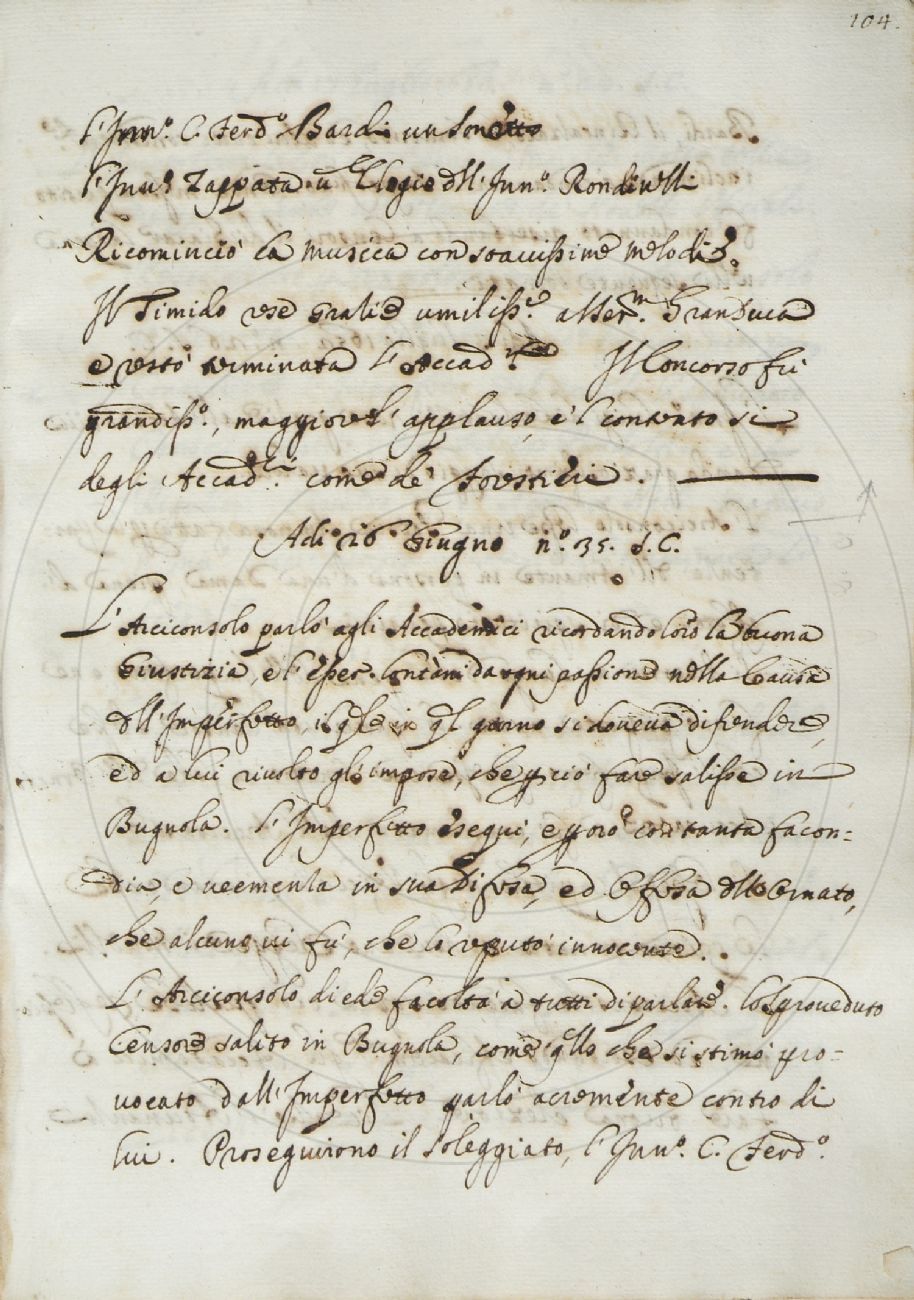 104.
L'Inn.º C. Ferd.º Bardi un Sonetto
L'Inn.º Zappata u Elogio dll' Inn.º Rondinelli
Ricominciò la musica con soavissime melodie.
Il Timido rese gratie umiliss.e al Ser.m Granduca
e restò terminata l'Accad.ia Il Concorso fù
grandiss.º, maggiore l'applauso, e 'l contento si
degli Accad.ci come de' Forestieri.
Adi 26 Giugno n.º 35. S.C.
L'Arciconsolo parlò agli Accademici ricordando loro la buona
Giustizia, e l'esser lontani da ogni passione nella Causa
dll' Imperfetto, il qle in ql giorno si doveva difendere,
ed a lui rivolto gli impose, che p ciò fare salisse in
Bugnola. L'Imperfetto eseguì, e porò con tanta facon=
dia, e veementa in sua Difesa, ed Offesa dllo Ornato,
che alcuno vi fù, che lo reputò innocente.
L'Arciconsolo diede facoltà a tutti di parlare. Lo Sproveduto
Censore salito in Bugnola, come qllo che si stimò pro=
vocato dall' Imperfetto parlò acremente contro di
lui. Proseguirono il Soleggiato, l'Inn.º C. Ferd.º